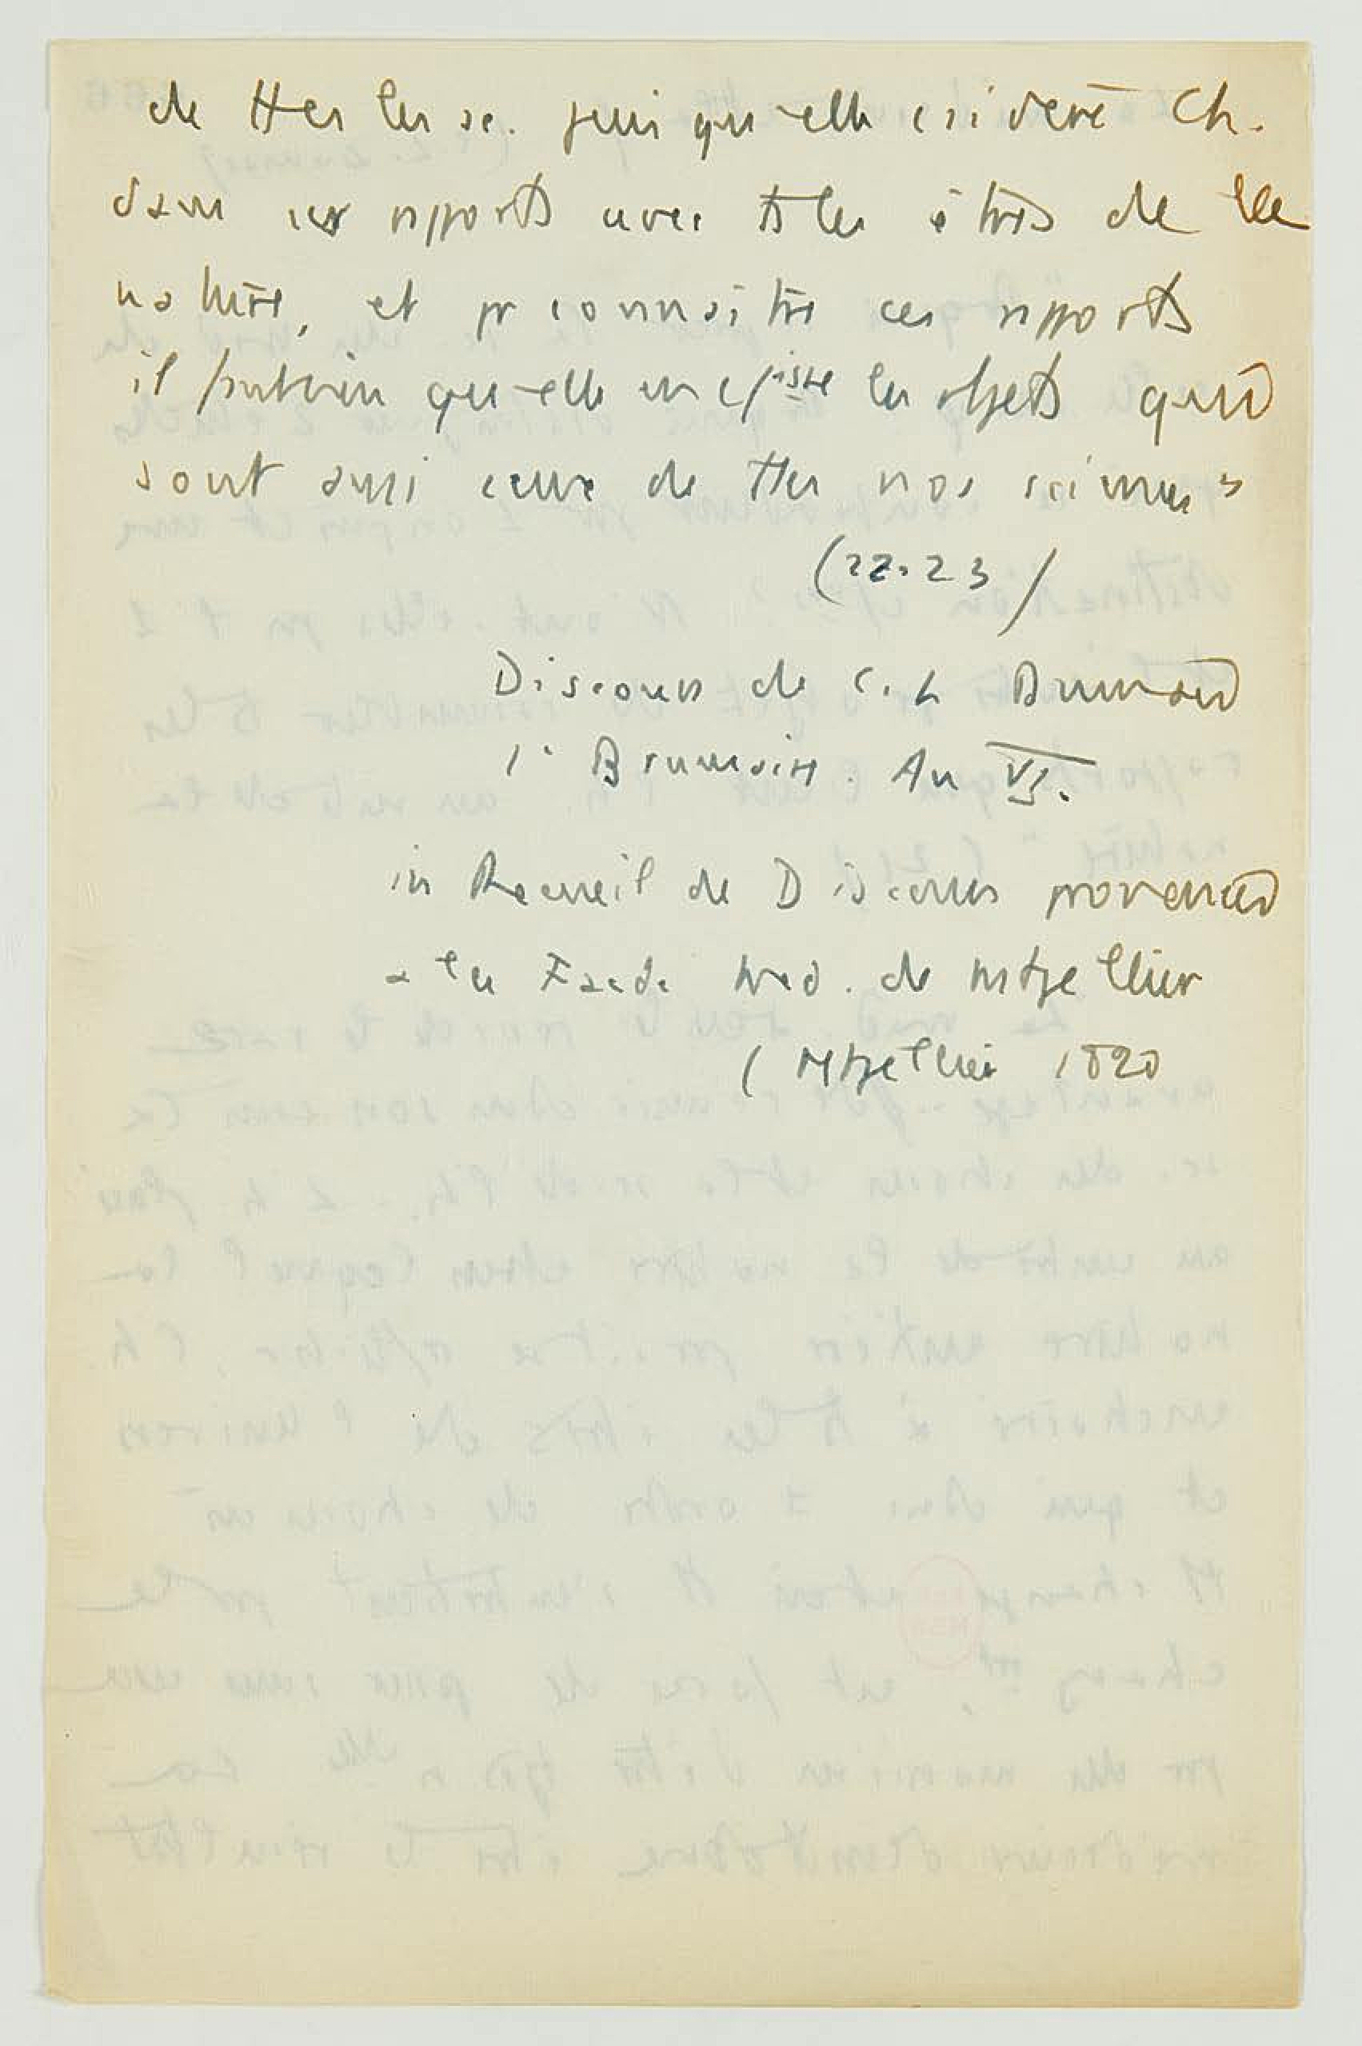 de ttes les sc. puisqu'elle csidère l'h.
dans ses rapports avec ts les êtres de la
nature, et pr connaître ces rapports
il faut bien qu'elle en connaisse les objets qui
sont aussi ceux de ttes nos sciences
(22-23)
Discours de C. L. Dumas
1er Brumaire. An VI.
in Recueil de Discours prononcés
à la Facde Med. de Mtpellier
(Mtpellier 1820